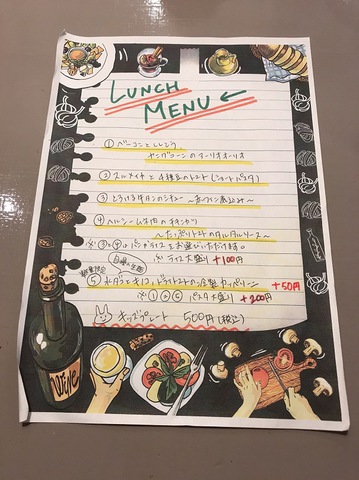 LUNCH
MENU ←
① ベーコンとししとう
ヤングコーンのアーリオオーリオ
② スルメイカと4種豆のトマト(ショートパスタ)
③ とろける牛タンのシチュー ~赤ワイン煮込み~
④ ヘルシー 肉のチキンカツ
~たっぷりトマトのタルタルソース~
※③④、パンorライスをお選びいただけます。
自慢の生麺 ※ ライス大盛り +100円
数量限定
⑤ ホタテとキノコ、ドライトマトの 製カッペリーニ +50円
※①②⑤ パスタ大盛り +200円
キッズプレート 500円(税込)
Wine